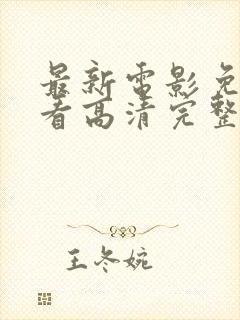 最新电影免
看高清完整
王冬婉